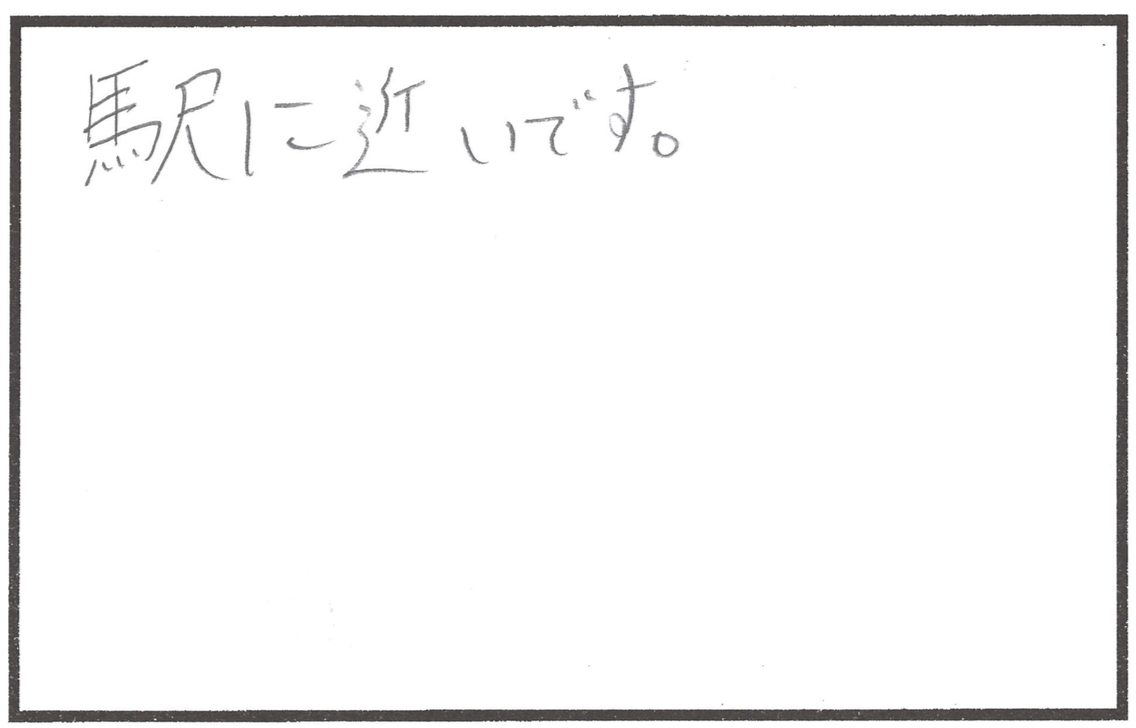 駅に近いです。